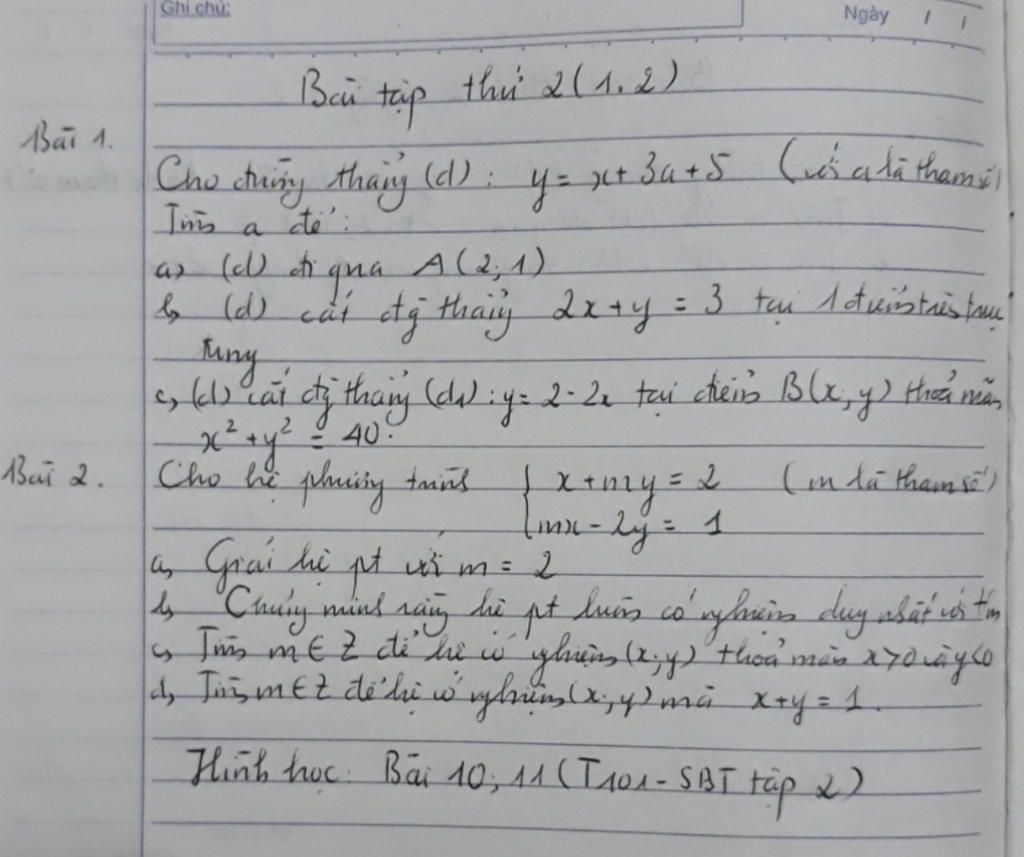 Ghi chú:
Ngày / /
Bài tập thứ 2 (1.2)
Bài 1.
Cho đường thẳng (d): y = x + 3a + 5 (với a là tham số)
Tìm a để:
a, (d) đi qua A(2;1)
b, (d) cắt đg thẳng 2x + y = 3 tại 1 điểm trên trục
tung
c, (d) cắt đg thẳng (d1): y = 2 - 2x tại điểm B(x,y) thoả mãn
x² + y² = 40.
Bài 2. Cho hệ phương trình { x + my = 2 (m là tham số)
mx - 2y = 1
a, Giải hệ pt với m = 2
b, Chứng minh rằng hệ pt luôn có nghiệm duy nhất với
c, Tìm m ∈ Z để hệ có nghiệm (x;y) thoả mãn x>0 và y<0
d, Tìm m ∈ Z để hệ có nghiệm (x;y) mà x + y = 1.
Hình học: Bài 10; 11 (T101 - SBT tập 2)